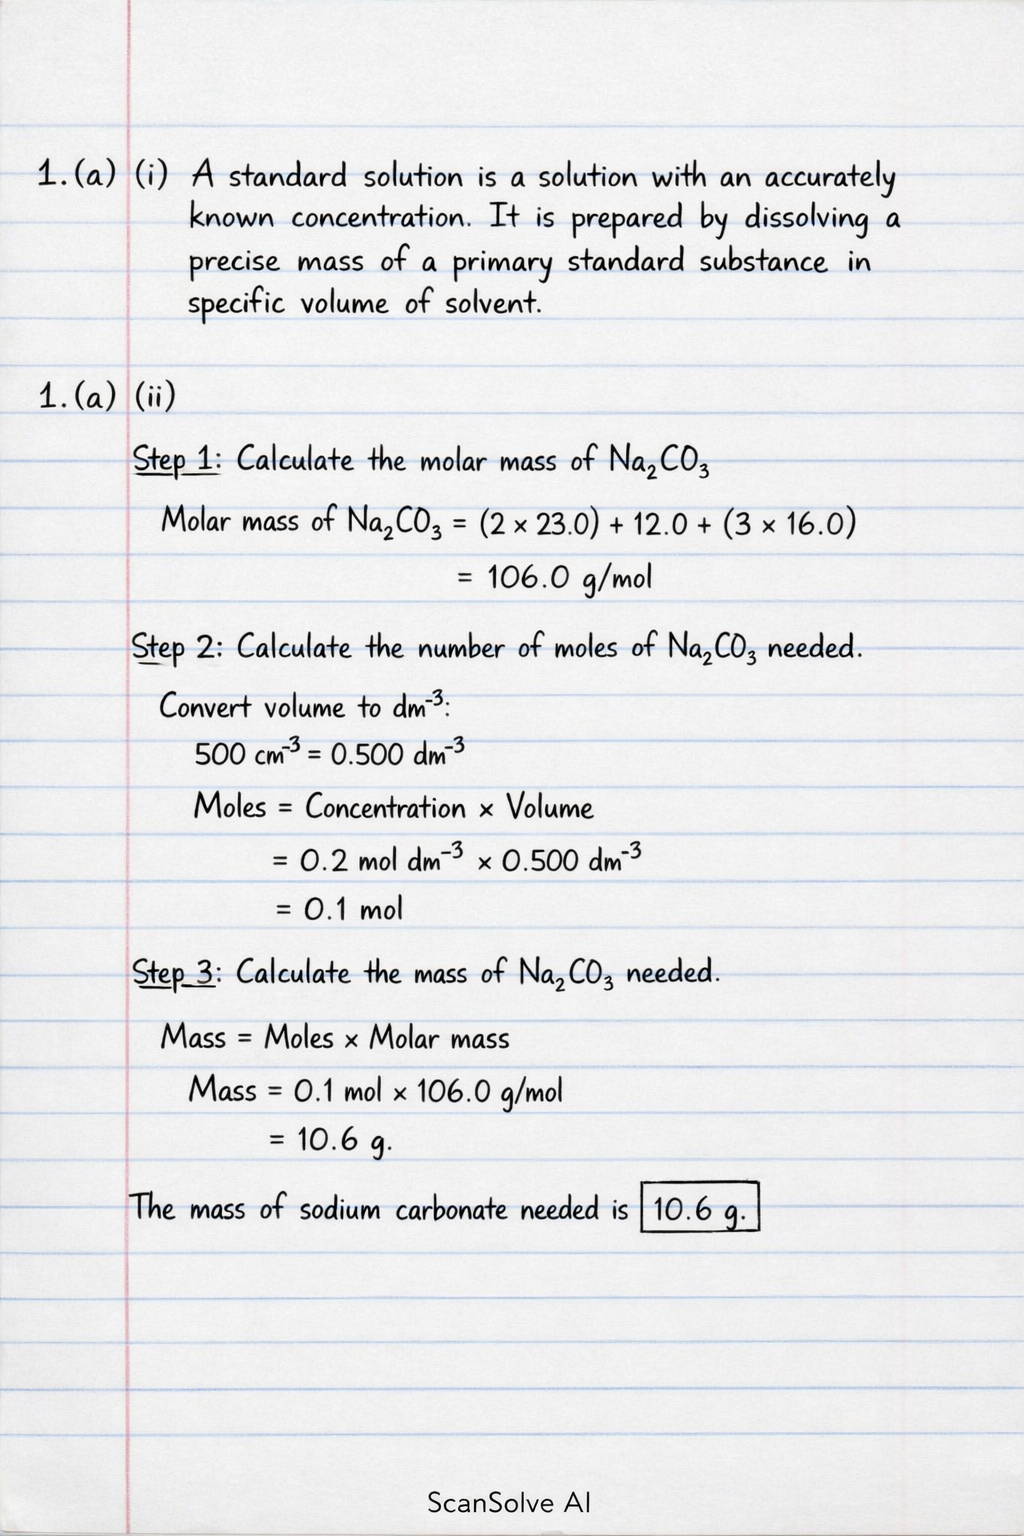 1. (a) (i) A standard solution is a solution with an accurately
known concentration. It is prepared by dissolving a
precise mass of a primary standard substance in
specific volume of solvent.
1. (a) (ii)
Step 1: Calculate the molar mass of Na₂CO₃
Molar mass of Na₂CO₃ = (2 × 23.0) + 12.0 + (3 × 16.0)
= 106.0 g/mol
Step 2: Calculate the number of moles of Na₂CO₃ needed.
Convert volume to dm⁻³:
500 cm⁻³ = 0.500 dm⁻³
Moles = Concentration × Volume
= 0.2 mol dm⁻³ × 0.500 dm⁻³
= 0.1 mol
Step 3: Calculate the mass of Na₂CO₃ needed.
Mass = Moles × Molar mass
Mass = 0.1 mol × 106.0 g/mol
= 10.6 g.
The mass of sodium carbonate needed is 10.6 g.
ScanSolve AI